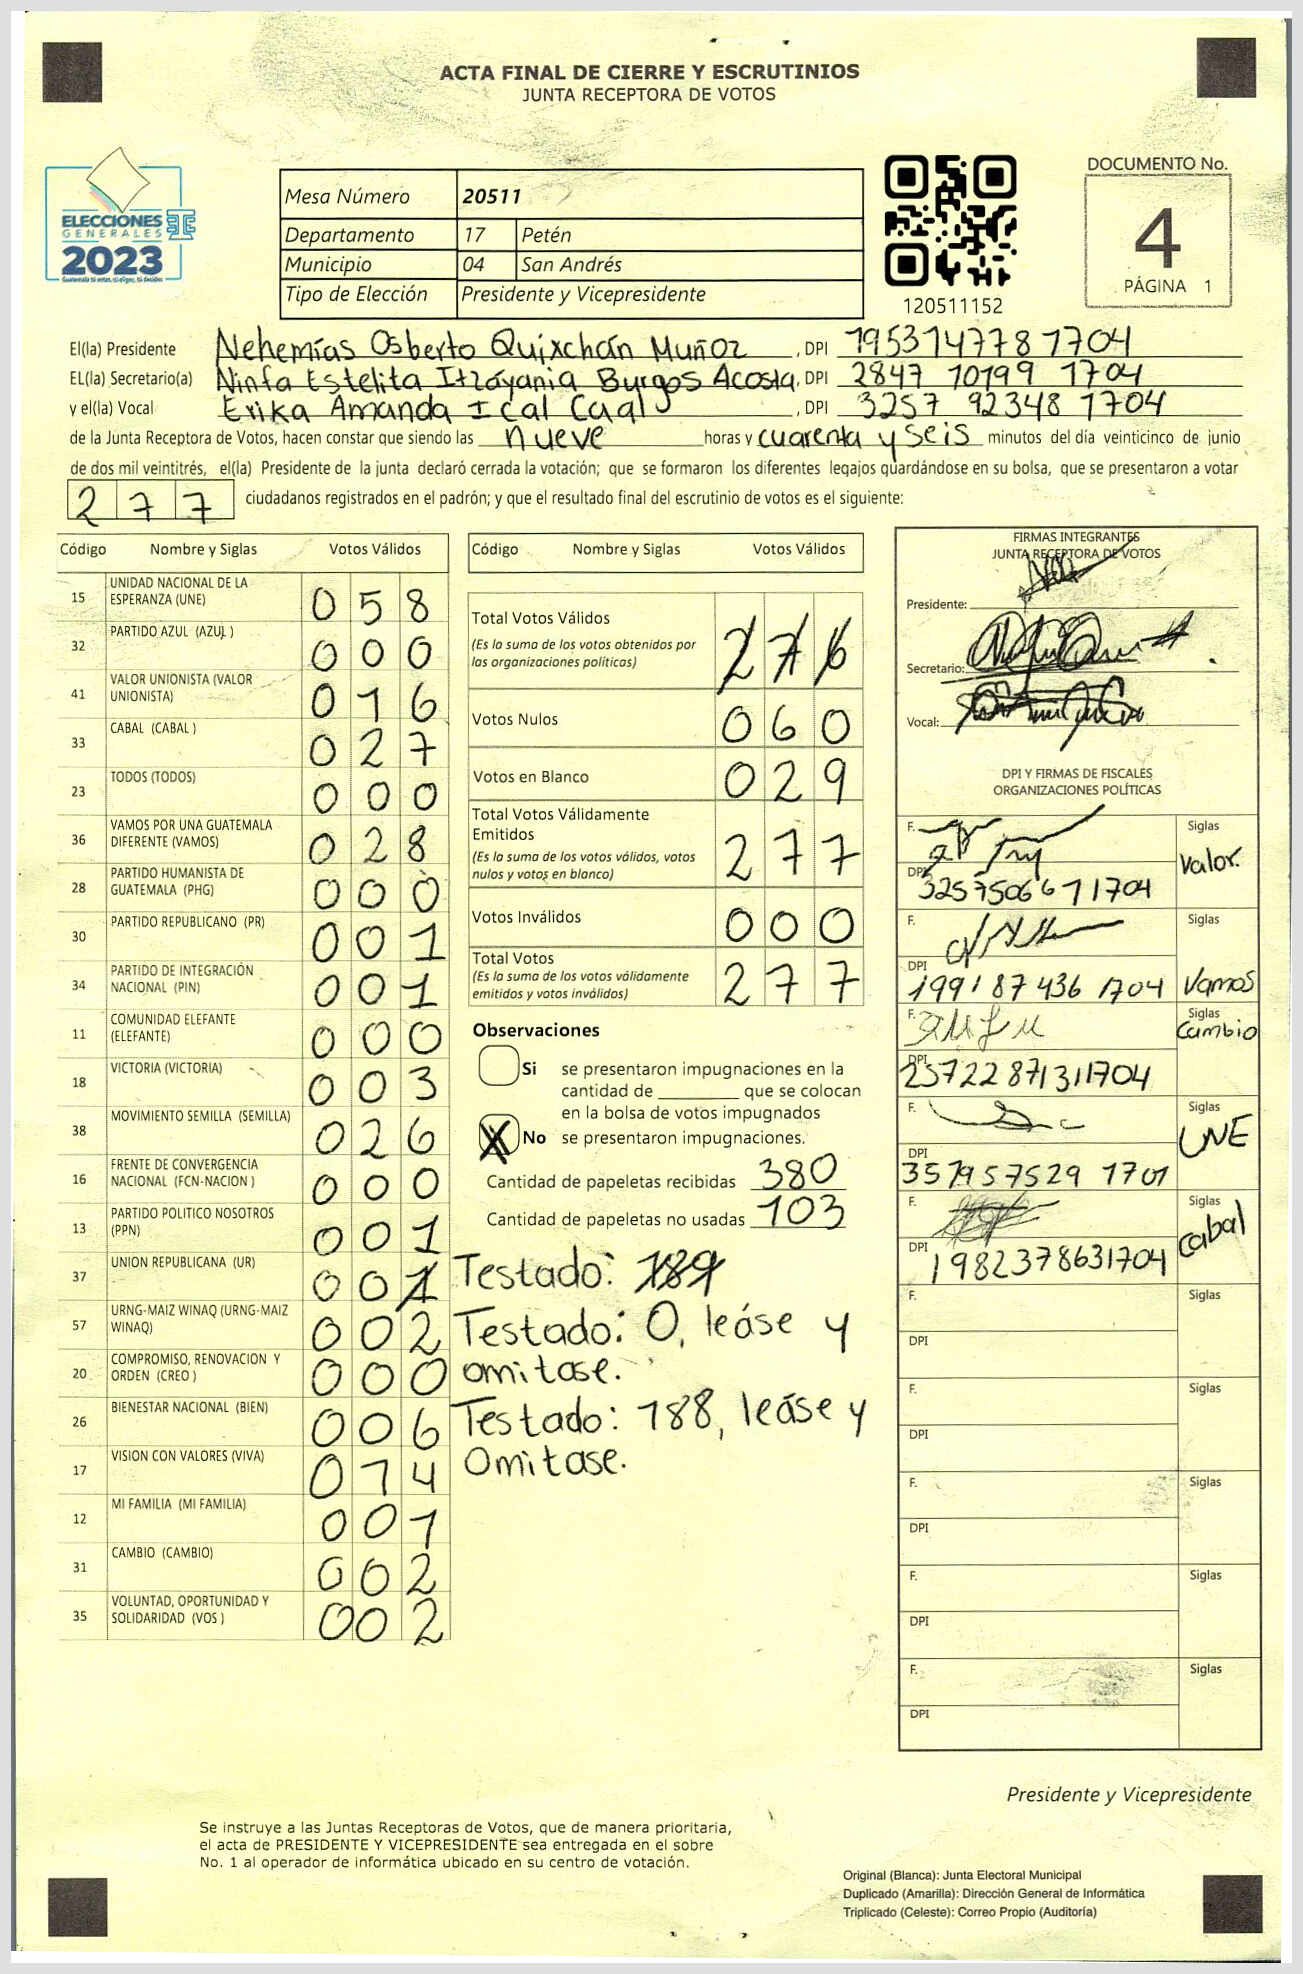 ACTA FINAL DE CIERRE Y ESCRUTINIOS
JUNTA RECEPTORA DE VOTOS
ELECCIONES
GENERALES
2023
Mesa Número 20511
Departamento 17 Petén
Municipio 04 San Andrés
Tipo de Elección Presidente y Vicepresidente
120511152
DOCUMENTO No.
4
PÁGINA 1
El(la) Presidente Nehemías Osberto Quixchán Muñoz, DPI 1953147781704
EL(la) Secretario(a) Ninfa Estelita Itzayania Burgos Acosta, DPI 2847 10199 1704
y el(la) Vocal Erika Amanda Ical Caal, DPI 3257 92348 1704
de la Junta Receptora de Votos, hacen constar que siendo las nueve horas y cuarenta y seis minutos del día veinticinco de junio
de dos mil veintitrés, el(la) Presidente de la junta declaró cerrada la votación; que se formaron los diferentes legajos guardándose en su bolsa, que se presentaron a votar
277 ciudadanos registrados en el padrón; y que el resultado final del escrutinio de votos es el siguiente:
Código Nombre y Siglas Votos Válidos
15 UNIDAD NACIONAL DE LA ESPERANZA (UNE) 058
32 PARTIDO AZUL (AZUL ) 000
41 VALOR UNIONISTA (VALOR UNIONISTA) 016
33 CABAL (CABAL ) 027
23 TODOS (TODOS) 000
36 VAMOS POR UNA GUATEMALA DIFERENTE (VAMOS) 028
28 PARTIDO HUMANISTA DE GUATEMALA (PHG) 000
30 PARTIDO REPUBLICANO (PR) 001
34 PARTIDO DE INTEGRACIÓN NACIONAL (PIN) 001
11 COMUNIDAD ELEFANTE (ELEFANTE) 000
18 VICTORIA (VICTORIA) 003
38 MOVIMIENTO SEMILLA (SEMILLA) 026
16 FRENTE DE CONVERGENCIA NACIONAL (FCN-NACION ) 000
13 PARTIDO POLITICO NOSOTROS (PPN) 001
37 UNION REPUBLICANA (UR) 00
57 URNG-MAIZ WINAQ (URNG-MAIZ WINAQ) 002
20 COMPROMISO, RENOVACION Y ORDEN (CREO ) 000
26 BIENESTAR NACIONAL (BIEN) 006
17 VISION CON VALORES (VIVA) 014
12 MI FAMILIA (MI FAMILIA) 001
31 CAMBIO (CAMBIO) 002
35 VOLUNTAD, OPORTUNIDAD Y SOLIDARIDAD (VOS ) 002
Código Nombre y Siglas Votos Válidos
Total Votos Válidos
(Es la suma de los votos obtenidos por
las organizaciones políticas)
Votos Nulos 060
Votos en Blanco 029
Total Votos Válidamente
Emitidos 277
(Es la suma de los votos válidos, votos
nulos y votos en blanco)
Votos Inválidos 000
Total Votos 277
(Es la suma de los votos válidamente
emitidos y votos inválidos)
Observaciones
Si se presentaron impugnaciones en la
cantidad de ________ que se colocan
en la bolsa de votos impugnados
X No se presentaron impugnaciones.
Cantidad de papeletas recibidas 380
Cantidad de papeletas no usadas 103
Testado: 189
Testado: 0, leáse y
omitase.
Testado: 188, leáse y
Omitase.
FIRMAS INTEGRANTES
JUNTA RECEPTORA DE VOTOS
Presidente:
Secretario:
Vocal:
DPI Y FIRMAS DE FISCALES
ORGANIZACIONES POLÍTICAS
F. Siglas
DPI 3257506671704 Valor.
F. Siglas
DPI 1991 87 436 1704 Vamos
F. Siglas
Cambio
DPI 2572287131704
F. Siglas
UNE
DPI 357957529 1701
F. Siglas
Cabal
DPI 1982378631704
F. Siglas
DPI
F. Siglas
DPI
F. Siglas
DPI
F. Siglas
DPI
F. Siglas
DPI
Presidente y Vicepresidente
Se instruye a las Juntas Receptoras de Votos, que de manera prioritaria,
el acta de PRESIDENTE Y VICEPRESIDENTE sea entregada en el sobre
No. 1 al operador de informática ubicado en su centro de votación.
Original (Blanca): Junta Electoral Municipal
Duplicado (Amarilla): Dirección General de Informática
Triplicado (Celeste): Correo Propio (Auditoría)